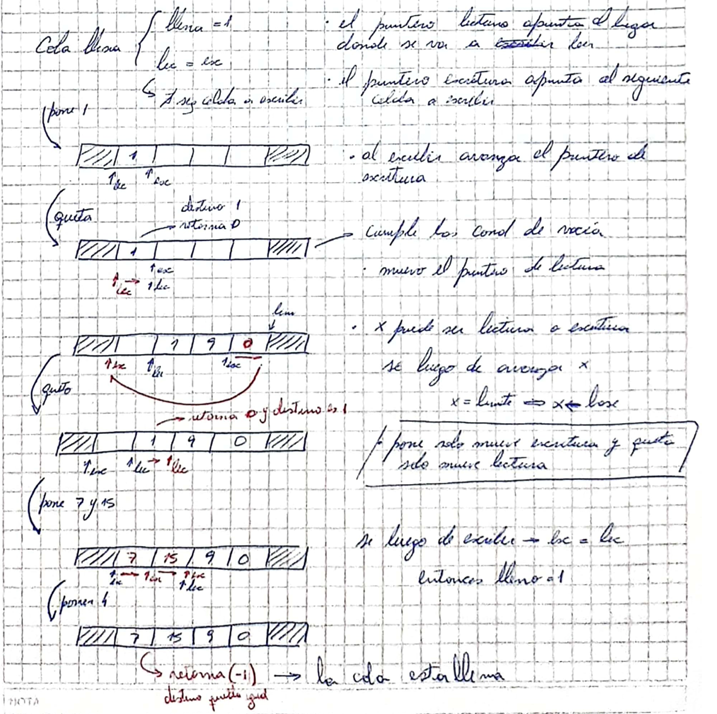 Cola llena { llena = 1
lec = esc
↳ sig celda a escribir
· el puntero lectura apunta al lugar
donde se va a escribir leer
· el puntero escritura apunta al siguiente
celda a escribir
pone 1
1
↑lec ↑esc
· al escribir avanza el puntero de
escritura
quita
destino 1
→ retorna 0
1
↑esc
↑lec → ↑lec
cumple las cond de vacía
· muevo el puntero de lectura
lim
1 9 0
↑esc ↑lec ↑esc
· x puede ser lectura o escritura
se luego de avanzar x
x = limite ⇒ x ← base
quito
→ retorna 0 y destino es 1
1 9 0
↑esc ↑lec → ↑lec
· pone solo mueve escritura y quita
solo mueve lectura
pone 7 y 15
7 15 9 0
↑esc → ↑esc → ↑esc
↑lec
si luego de escribir → esc = lec
entonces lleno = 1
ponen 4
7 15 9 0
↳ retorna (-1) → la cola esta llena
destino queda igual
NOTA